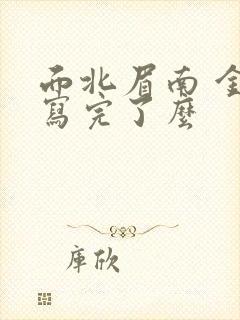 而北眉南 金
寫完了麼
庫欣